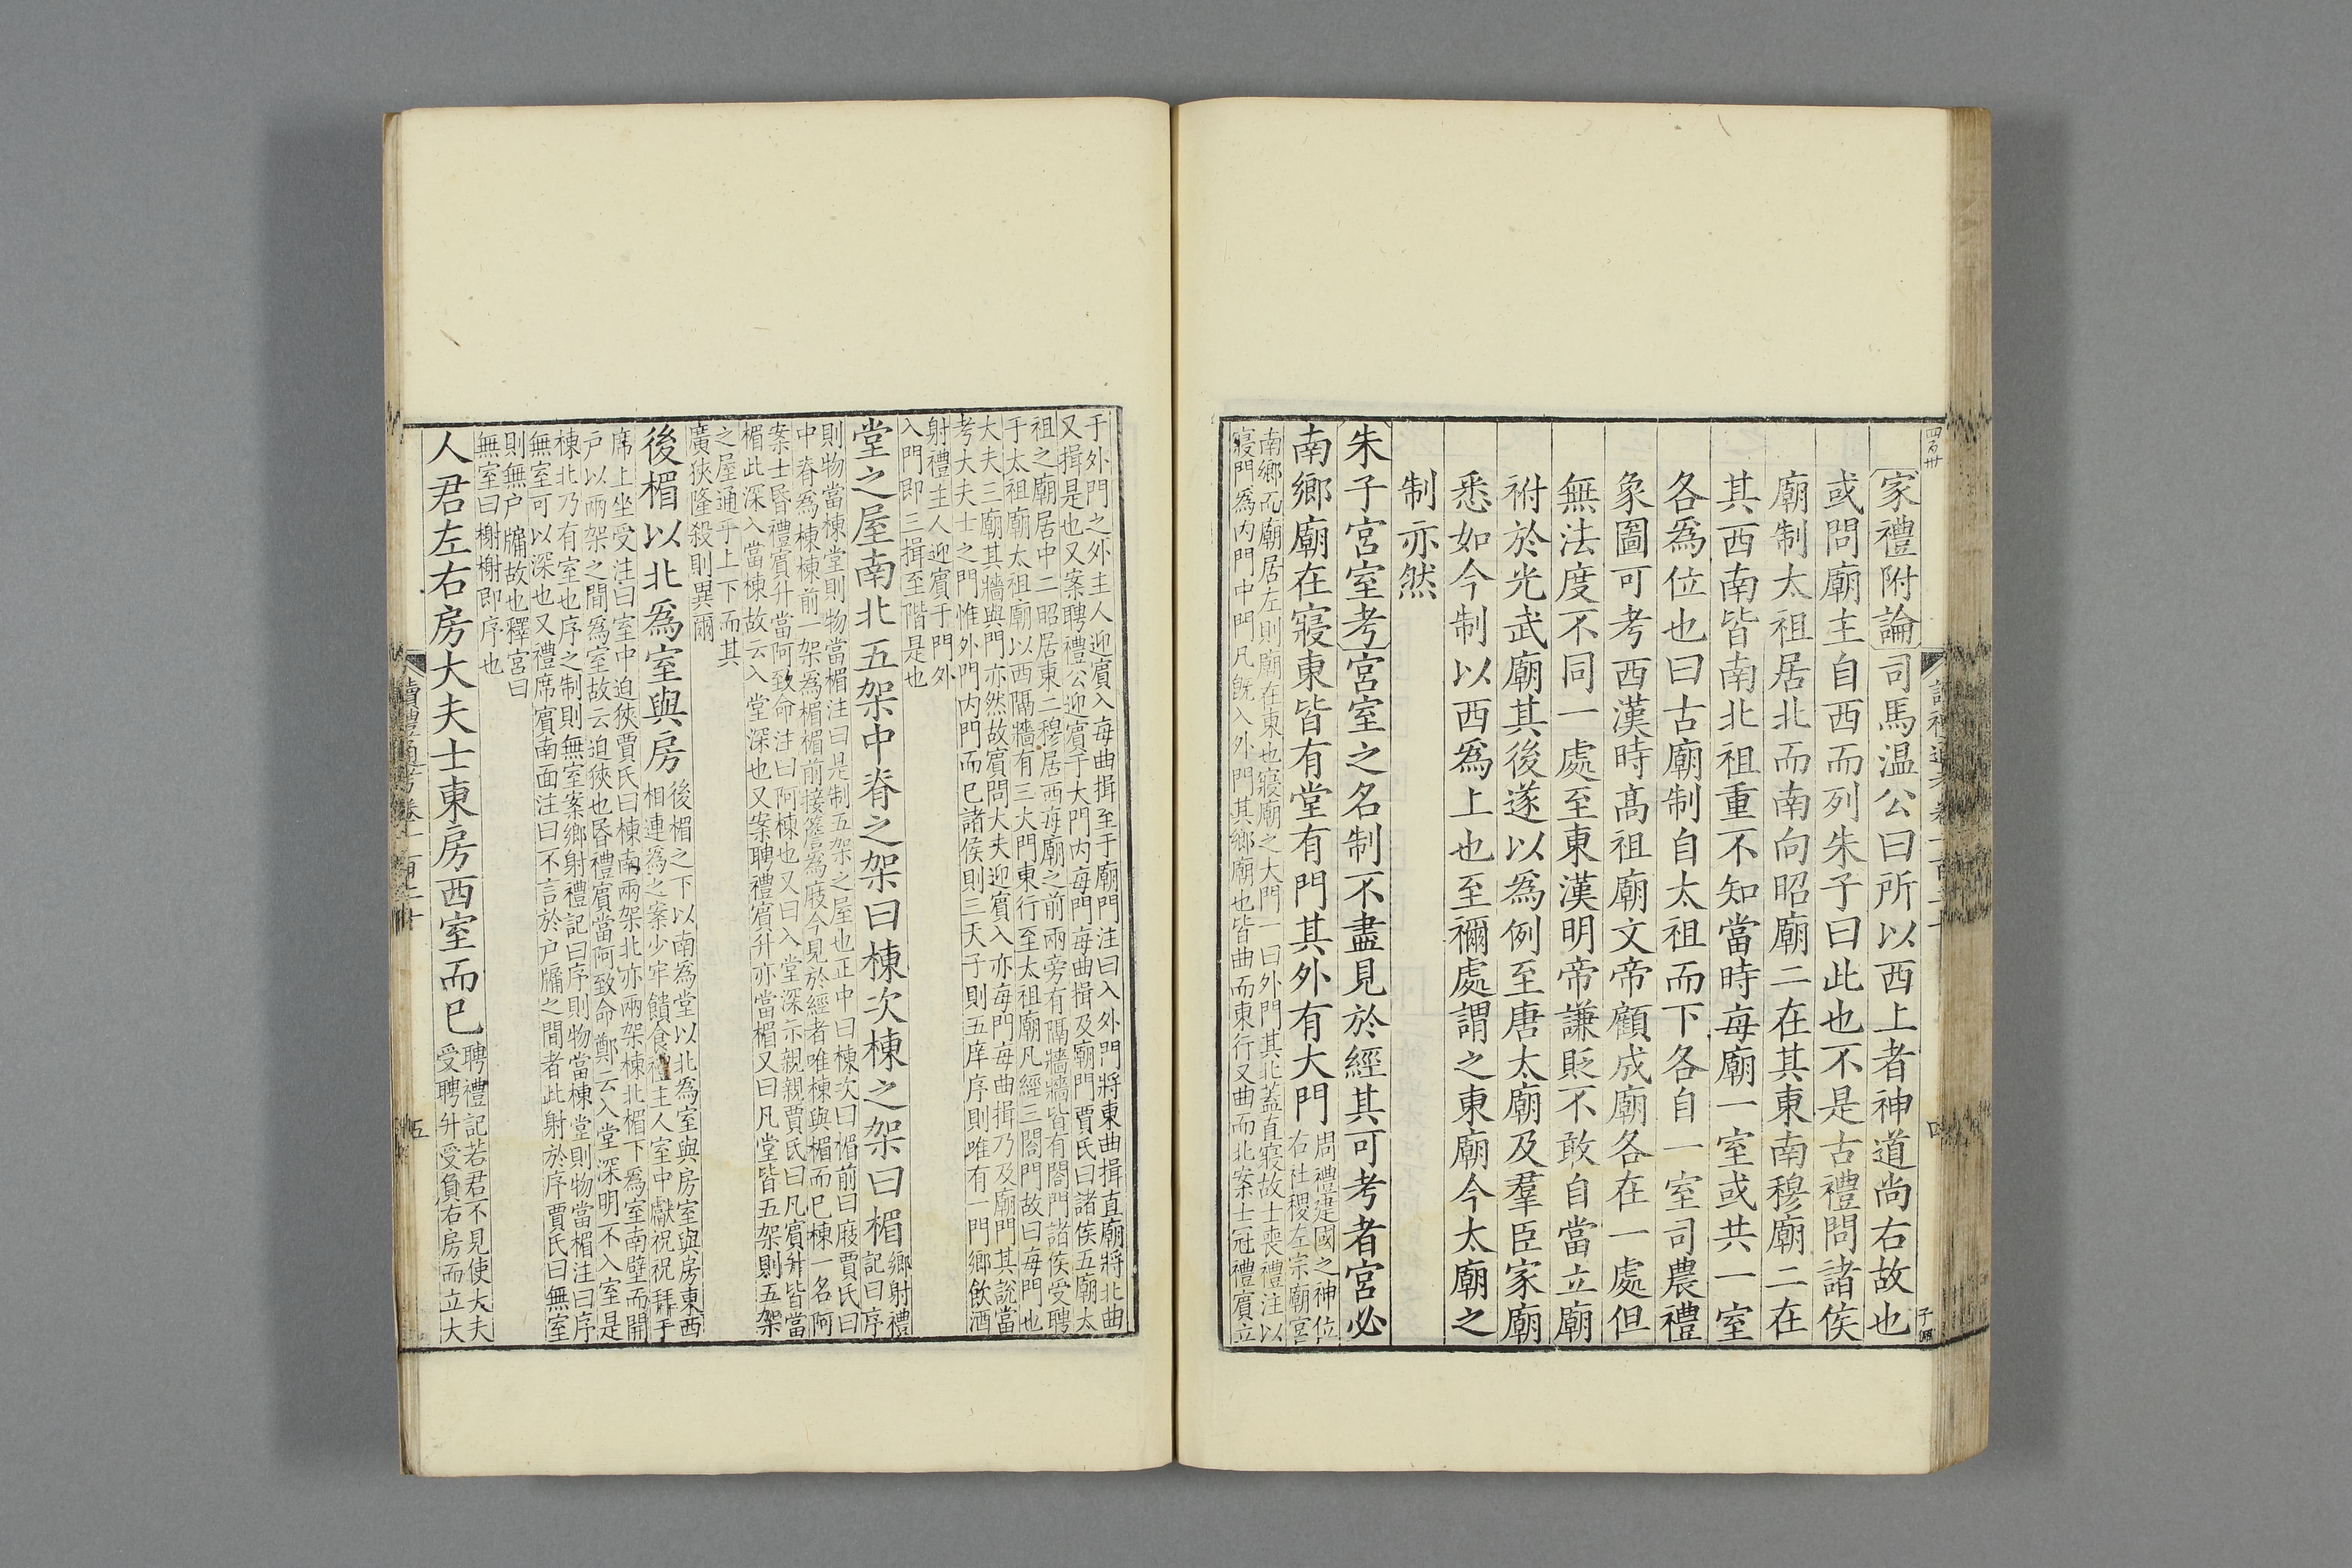 四百卅
讀禮通考卷一百二十
四
家禮附論司馬温公曰所以西上者神道尚右故也
或問廟主自西而列朱子曰此也不是古禮問諸侯
廟制太祖居北而南向昭廟二在其東南穆廟二在
其西南皆南北祖重不知當時每廟一室或共一室
各爲位也曰古廟制自太祖而下各自一室司農禮
象圖可考西漢時髙祖廟文帝顧成廟各在一處但
無法度不同一處至東漢明帝謙貶不敢自當立廟
祔於光武廟其後遂以爲例至唐太廟及羣臣家廟
悉如今制以西爲上也至禰處謂之東廟今太廟之
制亦然
朱子宮室考宮室之名制不盡見於經其可考者宮必
南鄉廟在寢東皆有堂有門其外有大門
周禮建國之神位
右社稷左宗廟宮
南鄉而廟居左則廟在東也寢廟之大門一曰外門其北蓋直寢故士喪禮注以
寢門爲内門中門凡既入外門其鄉廟也皆曲而東行又曲而北案士冠禮賓立
于外門之外主人迎賓入每曲揖至于廟門注曰入外門將東曲揖直廟將北曲
又揖是也又案聘禮公迎賓于大門内每門每曲揖及廟門賈氏曰諸侯五廟太
祖之廟居中二昭居東二穆居西每廟之前兩旁有隔牆牆皆有閤門諸侯受聘
于太祖廟太祖廟以西隔牆有三大門東行至太祖廟凡經三閤門故曰每門也
大夫三廟其牆與門亦然故賓問大夫迎賓入亦每門每曲揖乃及廟門其說當
考大夫士之門惟外門内門而已諸侯則三天子則五庠序則唯有一門鄉飲酒
射禮主人迎賓于門外
入門即三揖至階是也
堂之屋南北五架中脊之架曰棟次棟之架曰楣
鄉射禮
記曰序
則物當棟堂則物當楣注曰是制五架之屋也正中曰棟次曰楣前曰庪賈氏曰
中脊爲棟棟前一架爲楣楣前接簷爲庪今見於經者唯棟與楣而已棟一名阿
案士昏禮賓升當阿致命注曰阿棟也又曰入堂深示親親賈氏曰凡賓升皆當
楣此深入當棟故云入堂深也又案聘禮賓升亦當楣又曰凡堂皆五架則五架
之屋通乎上下而其
廣狹隆殺則異爾
後楣以北爲室與房
後楣之下以南爲堂以北爲室與房室與房東西
相連爲之案少牢饋食禮主人室中獻祝祝拜于
席上坐受注曰室中迫狹賈氏曰棟南兩架北亦兩架棟北楣下爲室南壁而開
戸以兩架之間爲室故云迫狹也昏禮賓當阿致命鄭云入堂深明不入室是
棟北乃有室也序之制則無室案鄉射禮記曰序則物當棟堂則物當楣注曰序
無室可以深也又禮席賓南面注曰不言於户牖之間者此射於序賈氏曰無室
則無户牖故也釋宮曰
無室曰榭榭即序也
人君左右房大夫士東房西室而已
聘禮記若君不見使大夫
受聘升受負右房而立大
讀禮通考卷一百二十
五